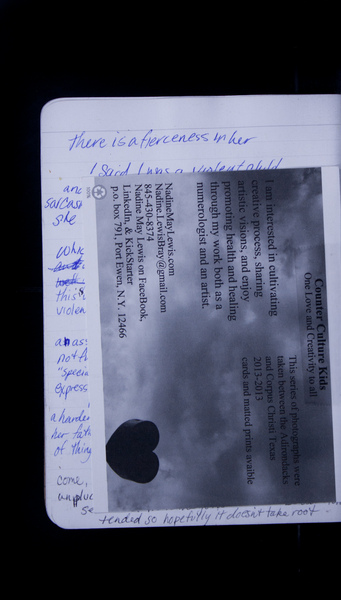 there is a fierceness in her
I said I was a violent child
and
sarcas
she
Whic
this
violen
an as
not
"specia
express
a harde
her fath
of thing
come,
unpluc
se
tended so hopefully it doesn't take root -
Counter Culture Kids
One Love and Creativity to all
This series of photographs were
taken between the Adirondacks
and Corpus Christi Texas
2013-2013
cards and matted prints avaible
I am interested in cultivating
creative process, sharing
artistic visions, and enjoy
promoting health and healing
through my work both as a
numerologist and an artist.
NadineMayLewis.com
Nadine.LewisBray@gmail.com
845-430-8374
Nadine May Lewis on FaceBook,
LinkedIn, & KickStarter
p.o. box 791, Port Ewen, N.Y. 12466